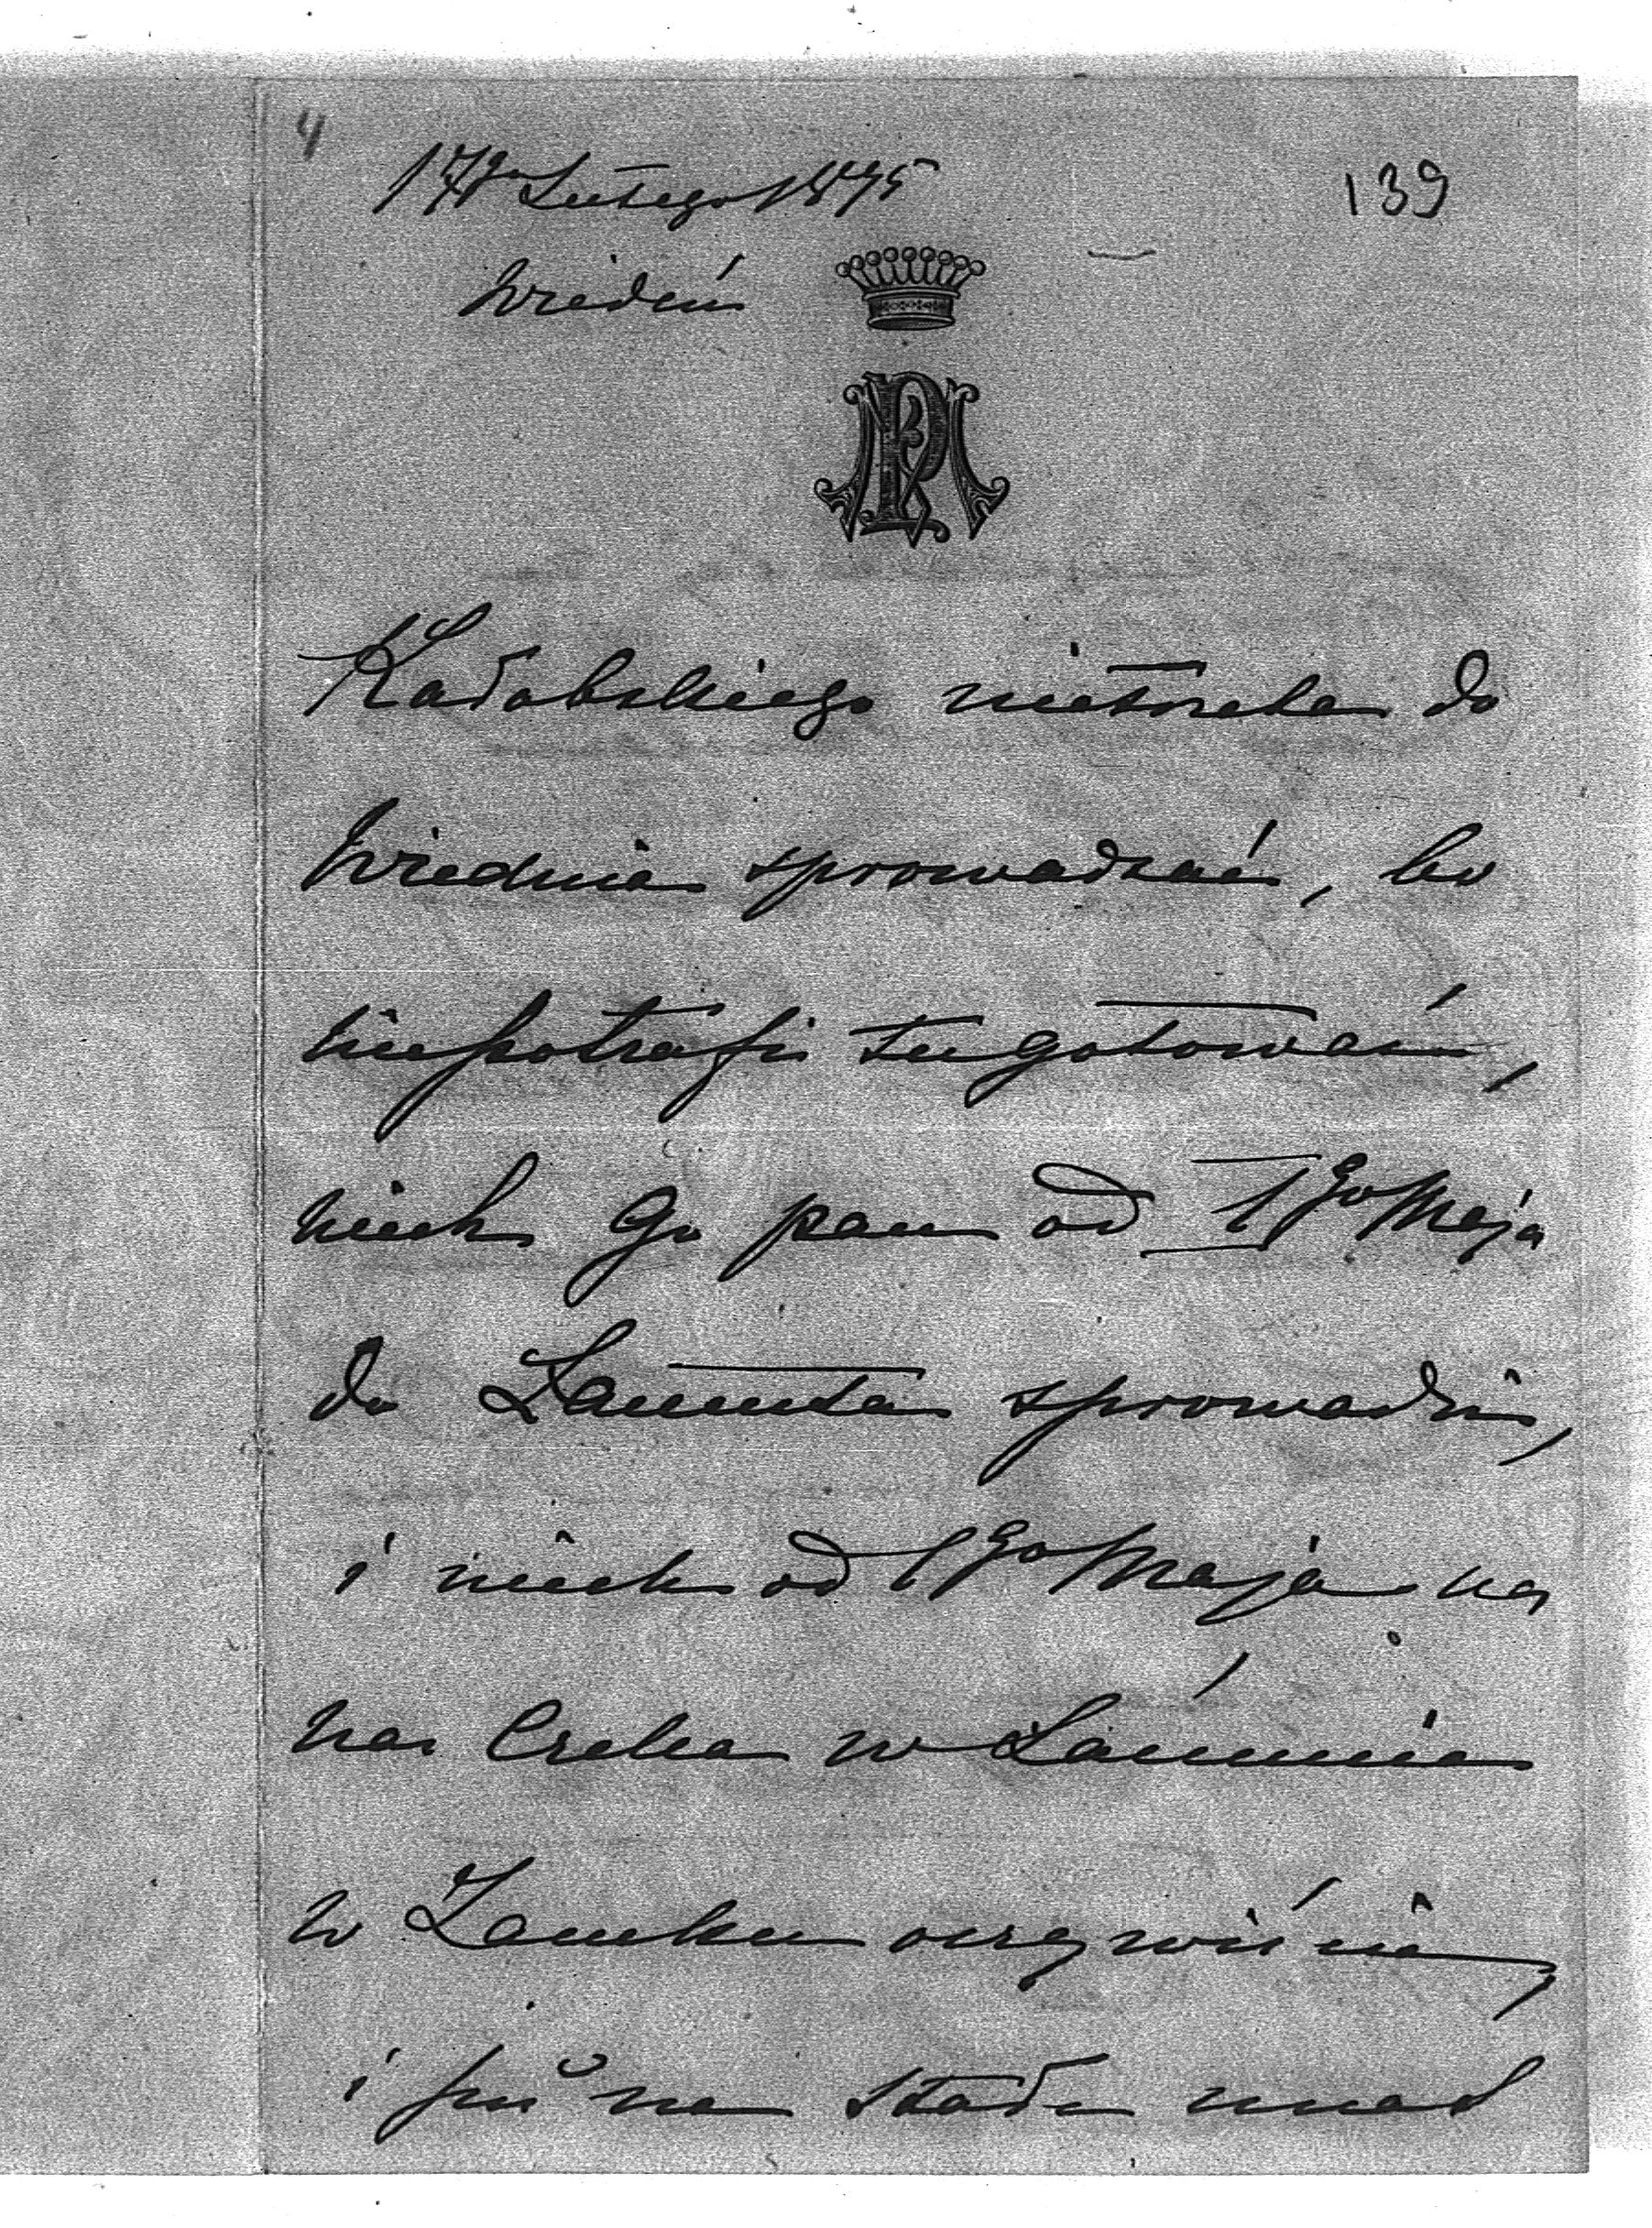 4
139
17go Lutego 1895
Wiedeń
Radobskiego nietrzeba do
Wiednia sprowadzać, bo
niepotrafi tu gotować,
niech go pan od 1go Maja
do Łańcuta sprowadzi,
i niech od 1go Maja na
nas czeka w Łańcucie
w Zamku oczywiście,
i już na stałe